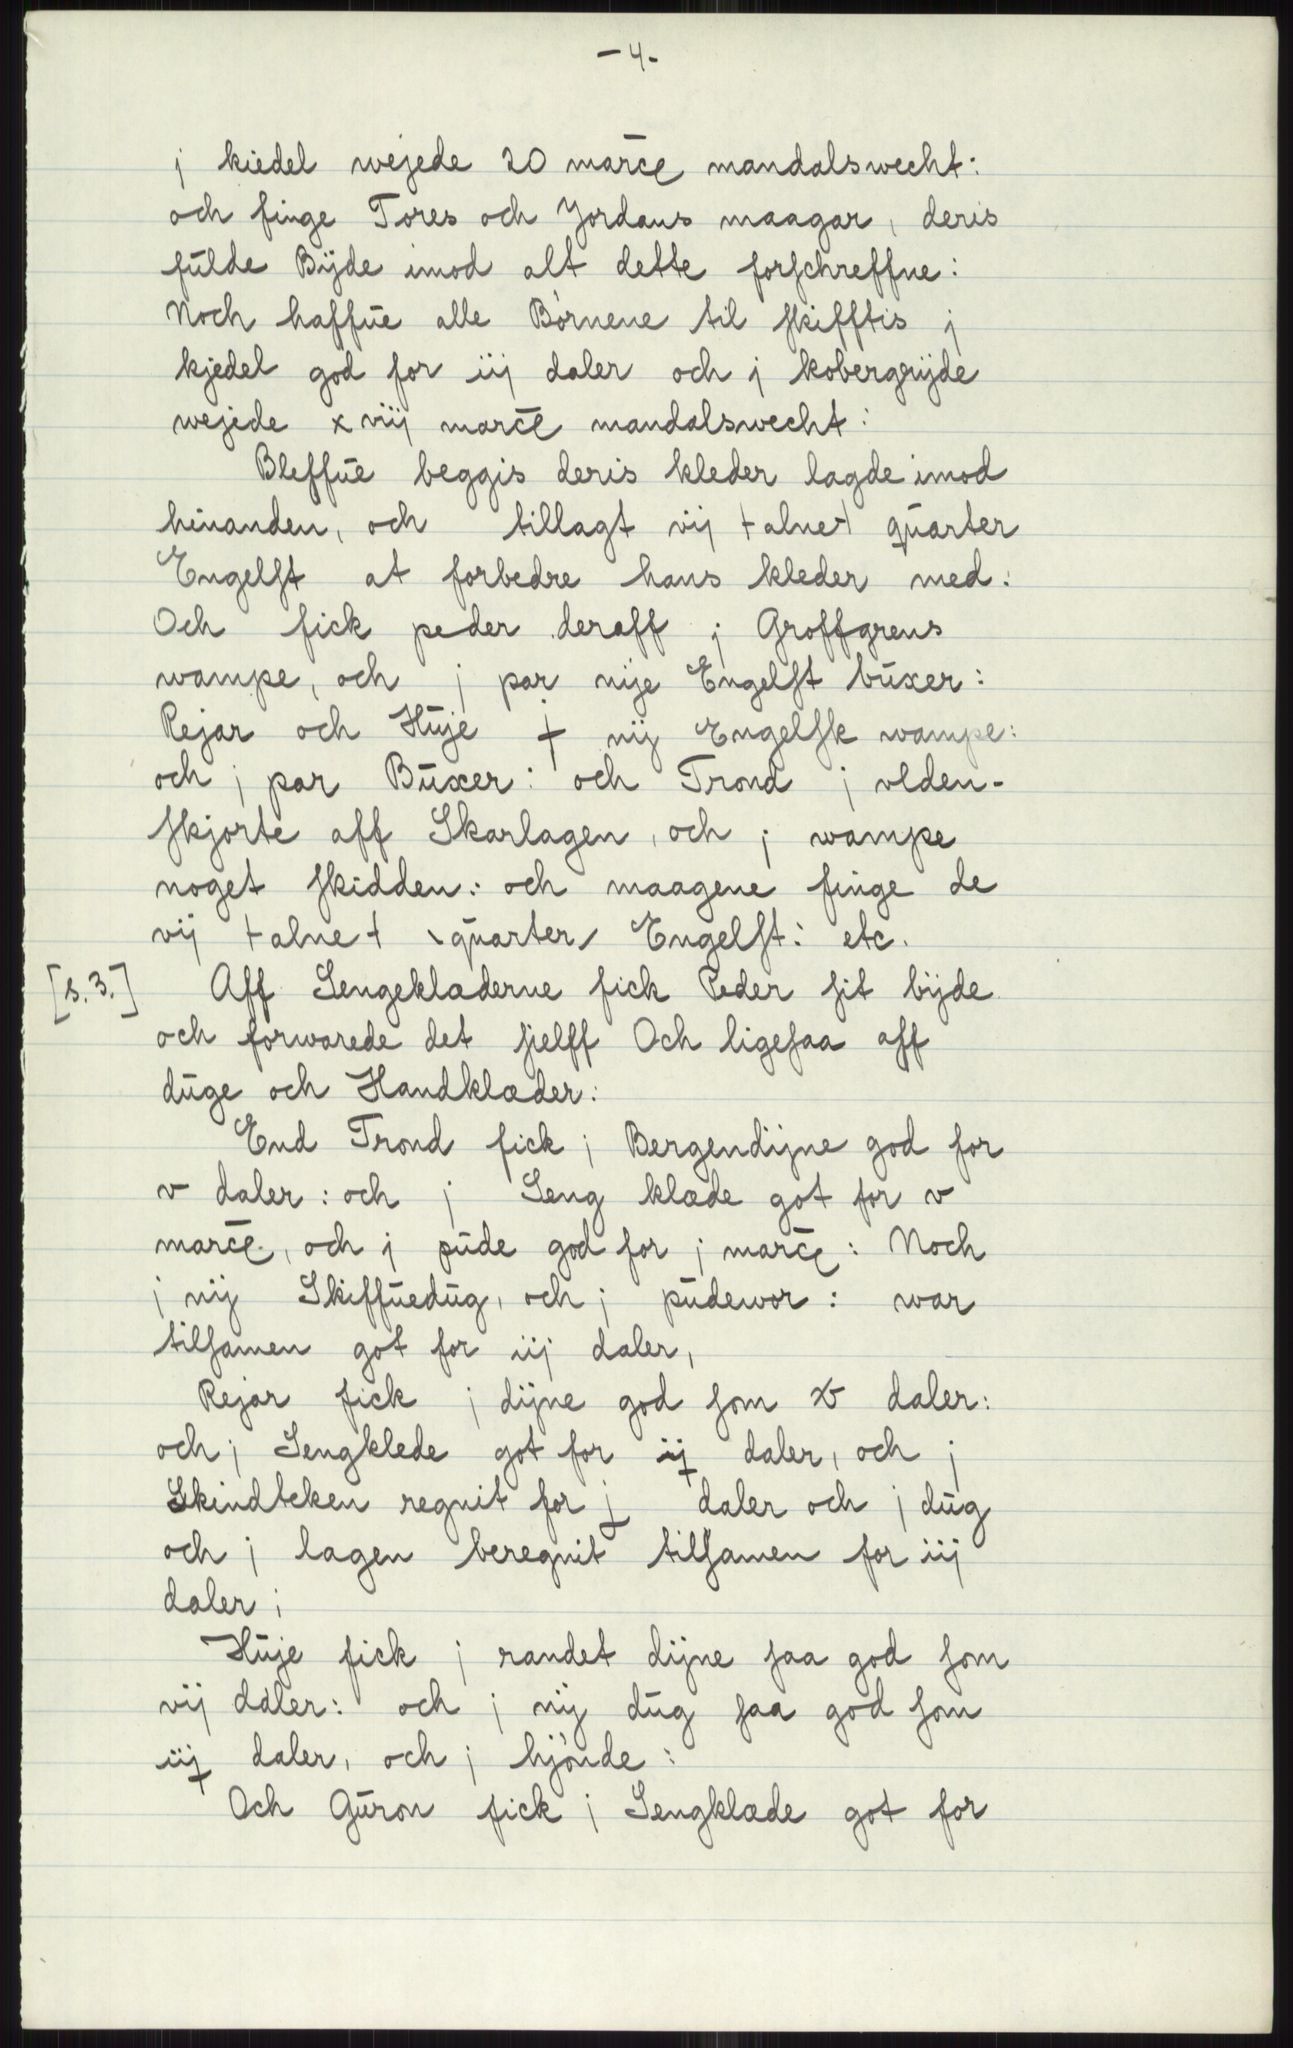 - 4 -
j kiedel wejede 20 marce mandalswecht:
och finge Tores och Jordans maagar, deris
fulde Bÿde imod alt dette forschreffne:
Noch haffue alle Börnene til skifftis j
kjedel god for iij daler och j kobergrÿde
wejede xviij marce mandalswecht:
Bleffue beggis deris kleder lagde imod
hinanden, och tillagt vij +alne+ quarter
Engelst at forbedre hans kleder med:
Och fick peder deraff j Groffgrens
wampe, och j par nije Engelst buxer:
Rejar och Huje j nij Engelsk wampe:
och j par Buxer: och Trond j vlden-
skjorte aff Skarlagen, och j wampe
noget skidden: och maagene finge de
vij +alne+ \quarter/ Engelst: etc.
[s. 3.] Aff Sengeklæderne fick Peder sit bijde
och forwarede det sielff Och ligesaa aff
duge och Handklæder:
End Trond fick j Bergendijne god for
v daler: och j Seng klæde got for v
marce, och j pude god for j marce: Noch
j nij Skiffuedug, och j pudewor: war
tilsamen got for iij daler,
Rejar fick j dijne god som v daler:
och j Sengklede got for ij daler, och j
Skindteken regnit for j daler och j dug
och j lagen beregnit tilsamen for iij
daler;
Huje fick j randet dijne saa god som
vij daler: och j nij dug saa god som
iij daler, och j hjönde:
Och Guron fick j Sengklæde got for